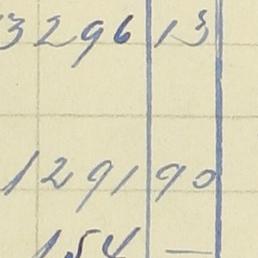 3296 13
1291 90
154 —